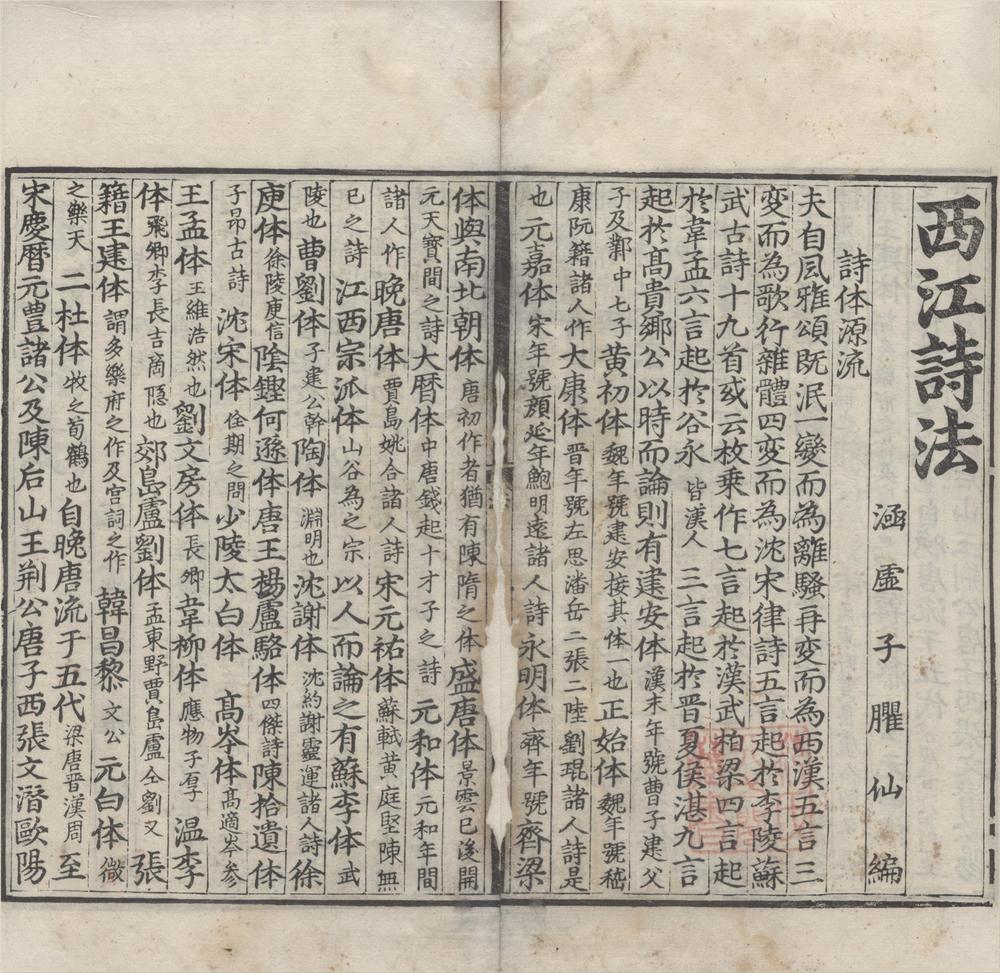 西江詩法
涵虛子臞仙編
詩体源流
夫自風雅頌既泯一變而為離騷再变而為西漢五言三
变而為歌行雜體四变而為沈宋律詩五言起於李陵蘇
武古詩十九首或云枚乗作七言起於漢武柏梁四言起
於韋孟六言起於谷永皆漢人三言起於晋夏侯湛九言
起於髙貴鄉公以時而論則有建安体漢末年號曹子建父
子及鄴中七子黄初体魏年號建安接其体一也正始体魏年號嵇
康阮籍諸人作大康体晋年號左思潘岳二張二陸劉琨諸人詩是
也元嘉体宋年號顔延年鮑明遠諸人詩永明体齊年號齊梁
体與南北朝体唐初作者猶有陳隋之体盛唐体景雲已後開
元天寳間之詩大曆体中唐錢起十才子之詩元和体元和年間
諸人作晚唐体賈島姚合諸人詩宋元祐体蘇軾黄庭堅陳無
已之詩江西宗派体山谷為之宗以人而論之有蘇李体武
陵也曹劉体子建公幹陶体淵明也沈謝体沈約謝靈運諸人詩徐
庾体徐陵庾信陰鏗何遜体唐王楊盧駱体四傑詩陳拾遺体
子昂古詩沈宋体佺期之問少陵太白体髙岑体髙適岑参
王孟体王維浩然也劉文房体長卿韋柳体應物子厚温李
体飛卿李長吉啇隱也郊島盧劉体孟東野賈島盧仝劉叉張
籍王建体謂多樂府之作及宫詞之作韓昌黎文公元白体微
之樂天二杜体牧之荀鶴也自晚唐流于五代梁唐晋漢周至
宋慶暦元豊諸公及陳后山王荆公唐子西張文潛歐陽